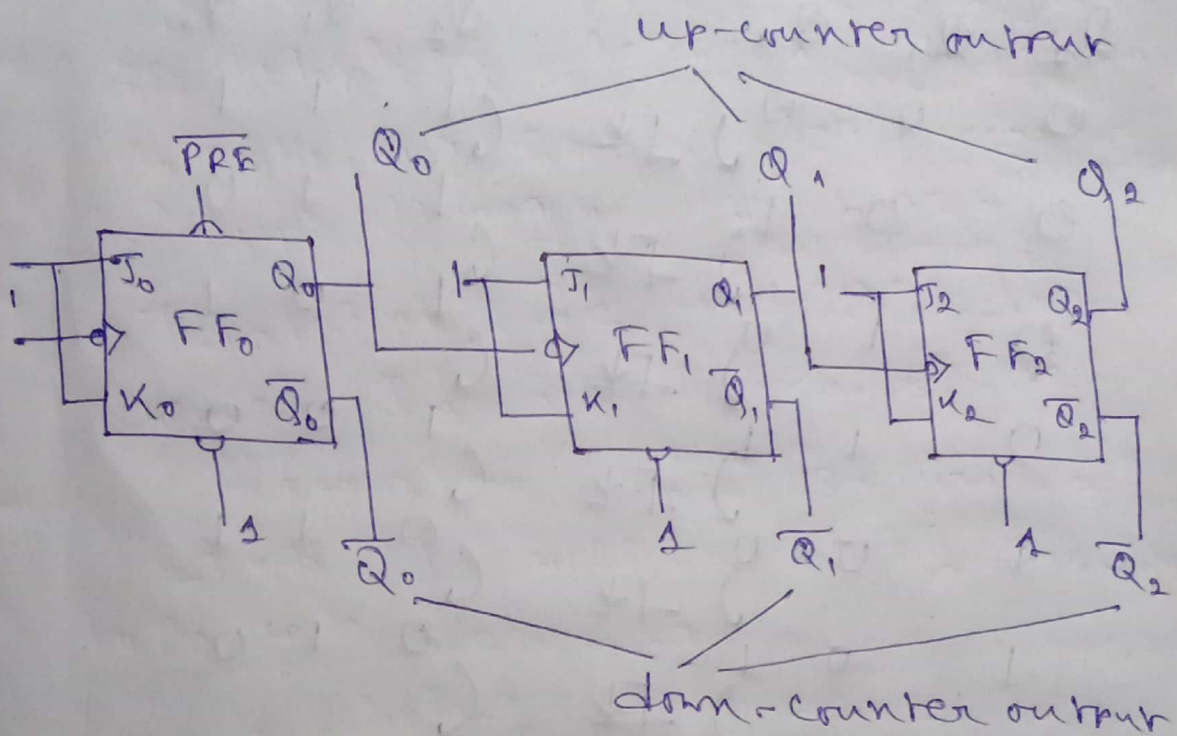 up-counter output
P̅R̅E̅
Q₀
Q₁
Q₂
J₀
Q₀
1
FF₀
K₀
Q̅₀
1
Q̅₀
1
J₁
Q₁
FF₁
K₁
Q̅₁
1
Q̅₁
1
J₂
Q₂
FF₂
K₂
Q̅₂
1
Q̅₂
down-counter output